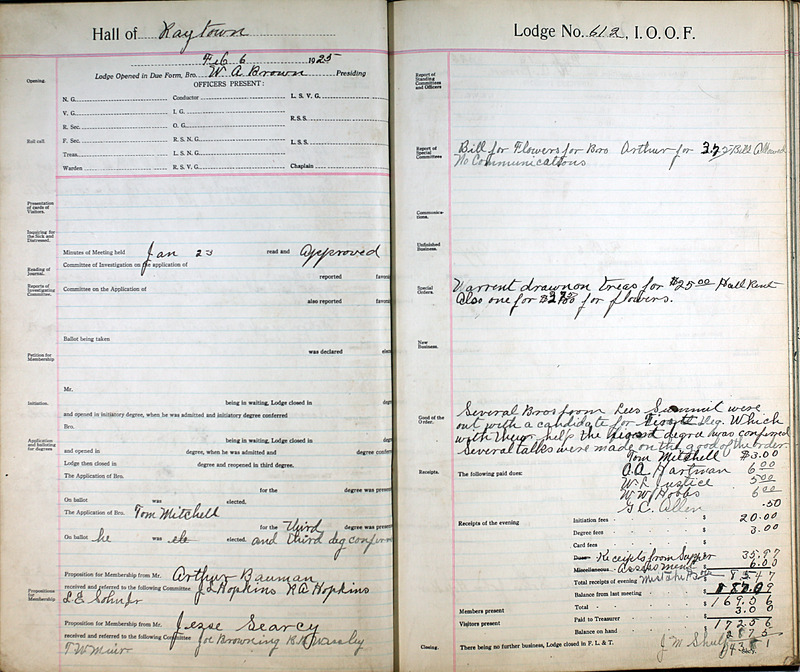 Hall of Raytown
Feb 6 1925
Lodge Opened in Due Form, Bro. W. A. Brown Presiding
OFFICERS PRESENT:
Opening.
N. G. Conductor L. S. V. G.
V. G. I. G.
R. S. S.
R. Sec. O. G.
Roll call
F. Sec. R. S. N. G. L. S. S.
Treas. L. S. N. G.
Warden R. S. V. G. Chaplain
Presentation of cards of Visitors.
Inquiring for the Sick and Distressed.
Minutes of Meeting held Jan 23 read and Approved
Reading of Journal.
Committee of Investigation on the application of
reported favor
Reports of Investigating Committee.
Committee on the Application of
also reported favor
Ballot being taken
was declared elec
Petition for Membership
Mr.
Initiation.
being in waiting, Lodge closed in deg
and opened in initiatory degree, when he was admitted and initiatory degree conferred
Bro.
Application and balloting for degrees.
being in waiting, Lodge closed in deg
and opened in degree, when he was admitted and degree confer
Lodge then closed in degree and reopened in third degree.
The Application of Bro.
for the degree was presen
On ballot was elected.
The Application of Bro. Tom Mitchell
for the Third degree was presen
On ballot he was ele elected. and third deg confer
Propositions for Membership
Proposition for Membership from Mr. Arthur Bauman
received and referred to the following Committee J L Hopkins R A Hopkins
L. E. Sohn Jr
Proposition for Membership from Mr. Jesse Searcy
received and referred to the following Committee Joe Browning
T. W. Muir
Lodge No. 612, I. O. O. F.
Report of Standing Committees and Officers
Report of Special Committees
Bill for Flowers for Bro Arthur for Bill Allowed
No Communications
Communications.
Unfinished Business.
Special Orders.
Warrent drawn on treas for $25.00 Hall Rent
Also one for for flowers.
New Business.
Good of the Order.
Several Bros from Lees Summit were
out with a candidate for Deg. Which
with their help the degree was confirred
Several talks were made on the good of the order.
Tom Mitchell $3.00
Receipts.
The following paid dues: A. A. Hartman 6.00
W. L. Justice 5.00
W W Hobbs 6.00
G. C. Allen .50
Receipts of the evening Initiation fees $ 20.00
Degree fees $ 3.00
Card fees $
Dues Receipts from Supper 35.97
Miscellaneous Assessment $ 6.00
Total receipts of evening $ 85.47
Balance from last meeting $
Total $ 169.56
Members present
Paid to Treasurer $ 3.00
Visitors present
172.56
Balance on hand $ 28.75
Closing.
There being no further business, Lodge closed in F. L. & T. J. M. Shul 143.81
Secy.